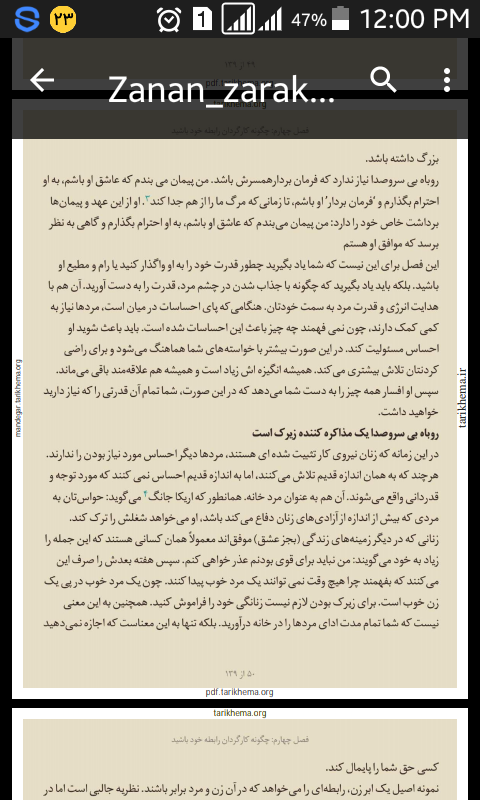 ۲۳ 1 47% 12:00 PM
۴۹ از ۱۳۹
pdf.tarikhema.org
Zanan_zarak...
tarikhema.org
فصل چهارم: چگونه کارگردان رابطه خود باشید.
بزرگ داشته باشد.
روباه بی سروصدا نیاز ندارد که فرمان بردارهمسرش باشد. من پیمان می بندم که عاشق او باشم، به او
احترام بگذارم و ’فرمان بردار‘ او باشم، تا زمانی‌که مرگ ما را از هم جدا کند۳. او از این عهد و پیمان‌ها
برداشت خاص خود را دارد: من پیمان می‌بندم که عاشق او باشم، به او احترام بگذارم و گاهی به نظر
برسد که موافق او هستم
این فصل برای این نیست که شما یاد بگیرید چطور قدرت خود را به او واگذار کنید یا رام و مطیع او
باشید. بلکه باید یاد بگیرید که چگونه با جذاب شدن در چشم مرد، قدرت را به دست آورید. آن هم با
هدایت انرژی و قدرت مرد به سمت خودتان. هنگامی‌که پای احساسات در میان است، مردها نیاز به
کمی کمک دارند، چون نمی فهمند چه چیز باعث این احساسات شده است. باید باعث شوید او
احساس مسئولیت کند. در این صورت بیشتر با خواسته‌های شما هماهنگ می‌شود و برای راضی
کردنتان تلاش بیشتری می‌کند. همیشه انگیزه اش زیاد است و همیشه هم علاقه‌مند باقی می‌ماند.
سپس او افسار همه چیز را به دست شما می‌دهد که در این صورت، شما تمام آن قدرتی را که نیاز دارید
خواهید داشت.
روباه بی سروصدا یک مذاکره کننده زیرک است
در این زمانه که زنان نیروی کار تثبیت شده ای هستند، مردها دیگر احساس مورد نیاز بودن را ندارند.
هرچند که به همان اندازه قدیم تلاش می‌کنند، اما به اندازه قدیم احساس نمی کنند که مورد توجه و
قدردانی واقع می‌شوند. آن هم به عنوان مرد خانه. همانطور که اریکا جانگ۴ می‌گوید: حواس‌تان به
مردی که بیش از اندازه از آزادی‌های زنان دفاع می‌کند باشد، او می‌خواهد شغلش را ترک کند.
زنانی که در دیگر زمینه‌های زندگی (بجز عشق) موفق‌اند معمولاً همان کسانی هستند که این جمله را
زیاد به خود می‌گویند: من نباید برای قوی بودنم عذر خواهی کنم. سپس هفته بعدش را صرف این
می‌کنند که بفهمند چرا هیچ وقت نمی توانند یک مرد خوب پیدا کنند. چون یک مرد خوب در پی یک
زن خوب است. برای زیرک بودن لازم نیست زنانگی خود را فراموش کنید. همچنین به این معنی
نیست که شما تمام مدت ادای مردها را در خانه درآورید. بلکه تنها به این معناست که اجازه نمی‌دهید
۵۰ از ۱۳۹
pdf.tarikhema.org
mandegar.tarikhema.org
tarikhema.ir
tarikhema.org
فصل چهارم: چگونه کارگردان رابطه خود باشید.
کسی حق شما را پایمال کند.
نمونه اصیل یک ابر زن، رابطه‌ای را می‌خواهد که در آن زن و مرد برابر باشند. نظریه جالبی است اما در